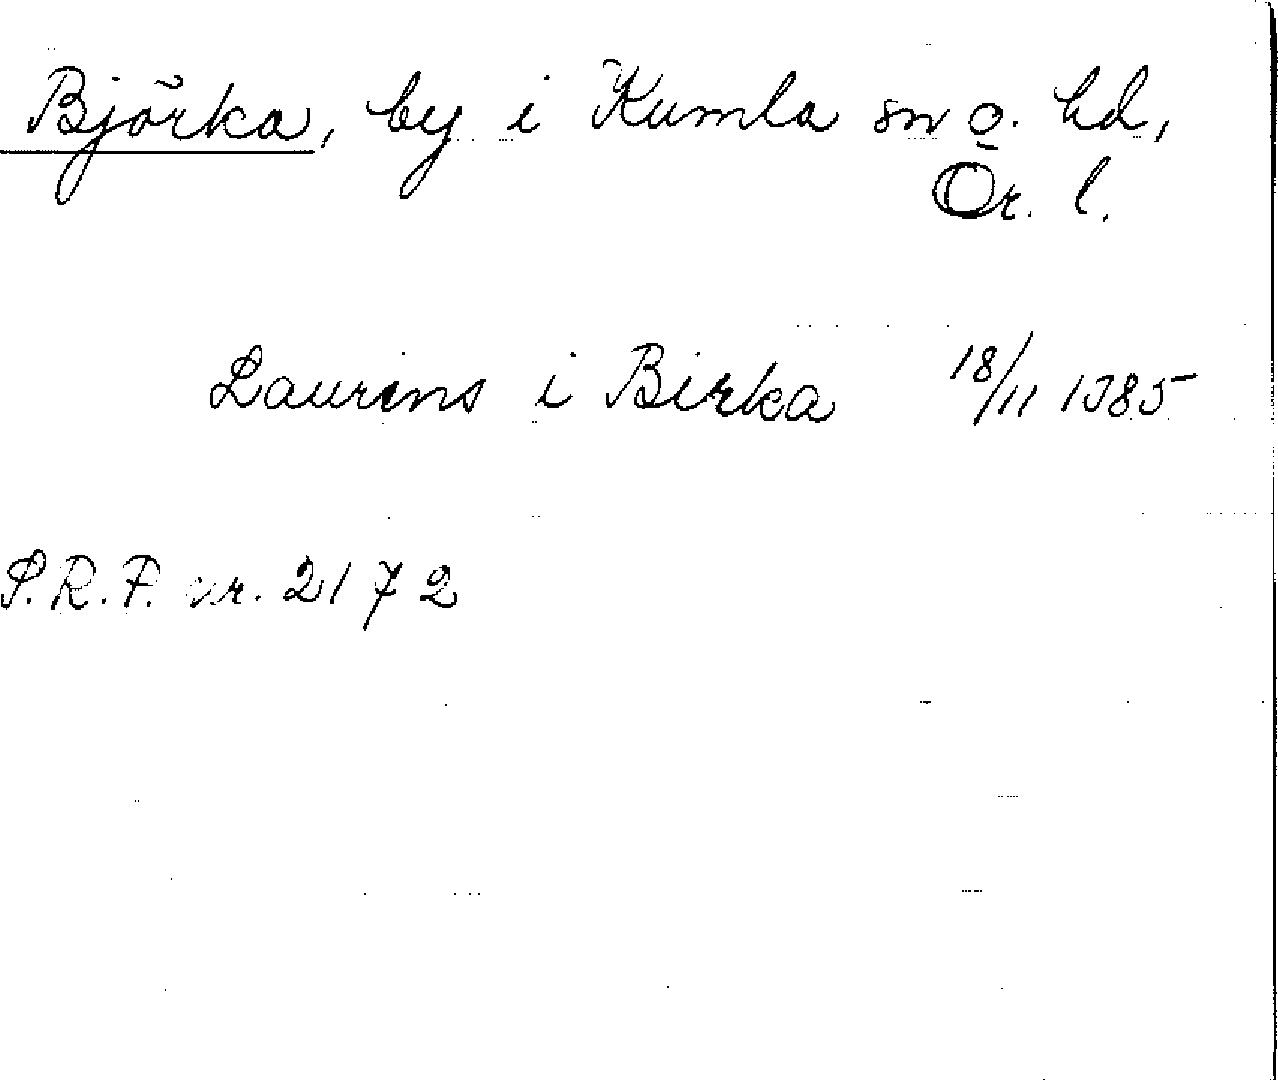 Björka, by i Kumla sn o. hd,
Ör. l.
Laurens i Birka 18/11 1385
S.R.P. nr. 2172